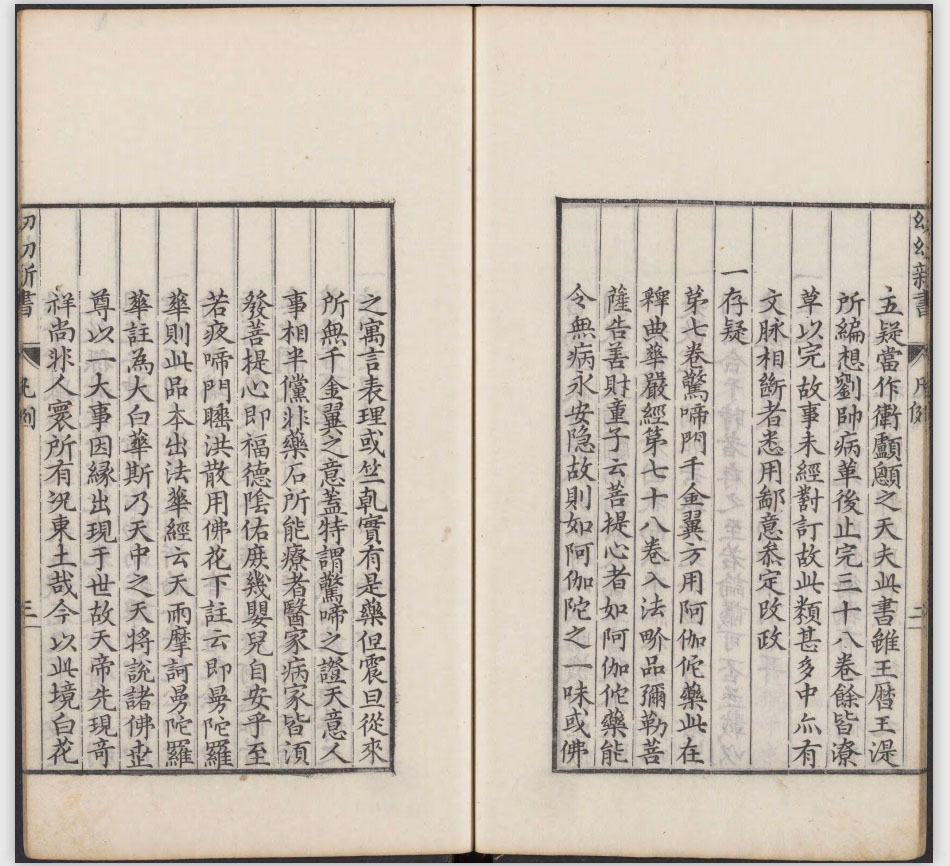 幼幼新書
凡例
二
五疑當作衝顱顖之天夫此書雖王曆王湜
所編想劉帥病革後止完三十八卷餘皆潦
草以完故事未經對訂故此類甚多中亦有
文脉相斷者悉用鄙意叅定改政
一存疑
第七卷驚啼門千金翼方用阿伽佗藥此在
釋典華嚴經第七十八卷入法界品彌勒菩
薩告善財童子云菩提心者如阿伽佗藥能
令無病永安隐故則如阿伽陀之一味或佛
之寓言表理或竺乹實有是藥但震旦從來
所無千金翼之意蓋特謂驚啼之證天意人
事相半儻非藥石所能療者醫家病家皆湏
發菩提心即福德陰佑庻幾嬰兒自安乎至
若夜啼門 洪散用佛花下註云即曼陀羅
華則此品本出法華經云天雨摩訶曼陀羅
華註為大白華斯乃天中之天將說諸佛 
尊以一大事因縁出現于世故天帝先現奇
祥尚非人寰所有况東土哉今以此境白花
幼幼新書
凡例
三